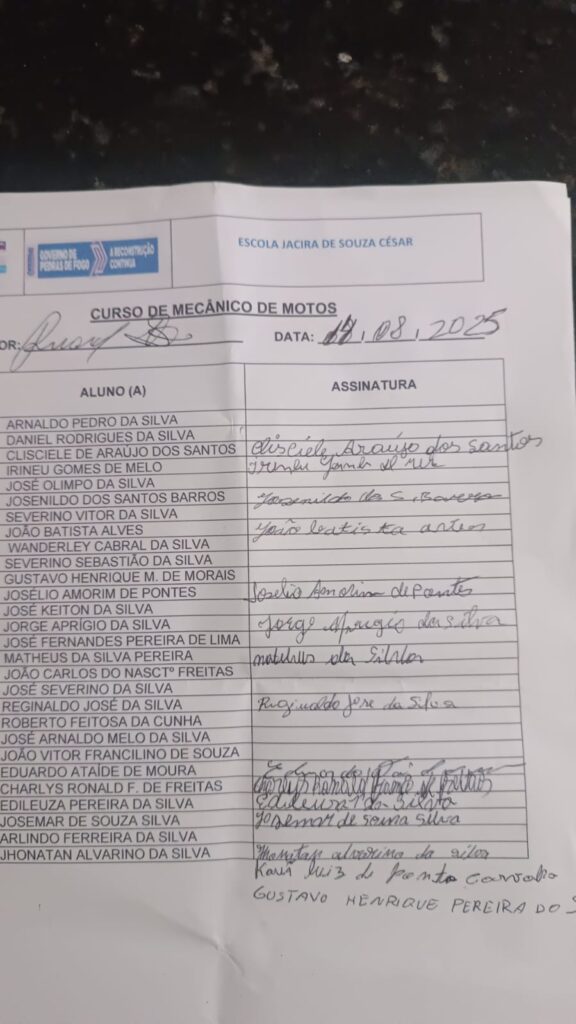 GOVERNO DE PEDRAS DE FOGO
A RECONSTRUÇÃO CONTINUA
ESCOLA JACIRA DE SOUZA CÉSAR
CURSO DE MECÂNICO DE MOTOS
OR: DATA: 08, 2025
ALUNO (A) ASSINATURA
ARNALDO PEDRO DA SILVA
DANIEL RODRIGUES DA SILVA
CLISCIELE DE ARAÚJO DOS SANTOS Clisciele Araújo dos Santos
IRINEU GOMES DE MELO
JOSÉ OLIMPO DA SILVA
JOSENILDO DOS SANTOS BARROS Josenildo dos S. Barros
SEVERINO VITOR DA SILVA
JOÃO BATISTA ALVES João batista
WANDERLEY CABRAL DA SILVA
SEVERINO SEBASTIÃO DA SILVA
GUSTAVO HENRIQUE M. DE MORAIS
JOSÉLIO AMORIM DE PONTES Joselio Amorim de pontes
JOSÉ KEITON DA SILVA
JORGE APRÍGIO DA SILVA Jorge Aprigio da silva
JOSÉ FERNANDES PEREIRA DE LIMA
MATHEUS DA SILVA PEREIRA matheus da Silva
JOÃO CARLOS DO NASCTº FREITAS
JOSÉ SEVERINO DA SILVA
REGINALDO JOSÉ DA SILVA Reginaldo Jose da Silva
ROBERTO FEITOSA DA CUNHA
JOSÉ ARNALDO MELO DA SILVA
JOÃO VITOR FRANCILINO DE SOUZA
EDUARDO ATAÍDE DE MOURA
CHARLYS RONALD F. DE FREITAS
EDILEUZA PEREIRA DA SILVA da Silva
JOSEMAR DE SOUZA SILVA Josemar de Souza Silva
ARLINDO FERREIRA DA SILVA
JHONATAN ALVARINO DA SILVA alvarino da silva
Kauã luiz de carvalho
GUSTAVO HENRIQUE PEREIRA DO S